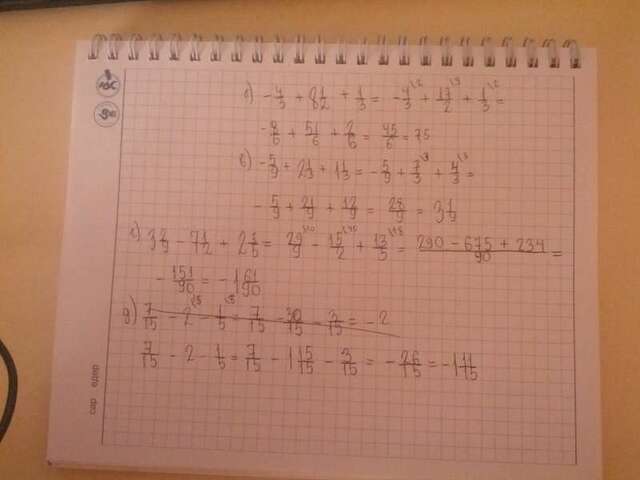 б) -4/3 + 8 1/2 + 1/3 = -4/3 \2 + 17/2 \3 + 1/3 \2 =
-8/6 + 51/6 + 2/6 = 45/6 = 7,5
в) -5/9 + 2 1/3 + 1 1/3 = -5/9 + 7/3 \3 + 4/3 \3 =
-5/9 + 21/9 + 12/9 = 28/9 = 3 1/9
г) 3 2/9 - 7 1/2 + 2 3/5 = 29/9 \10 - 15/2 \45 + 13/5 \18 = (290 - 675 + 234)/90 =
-151/90 = -1 61/90
д) 7/15 - 2 \15 - 1/5 \3 = 7/15 - 30/15 - 3/15 = -2
7/15 - 2 - 1/5 = 7/15 - 1 15/15 - 3/15 = -26/15 = -1 11/15